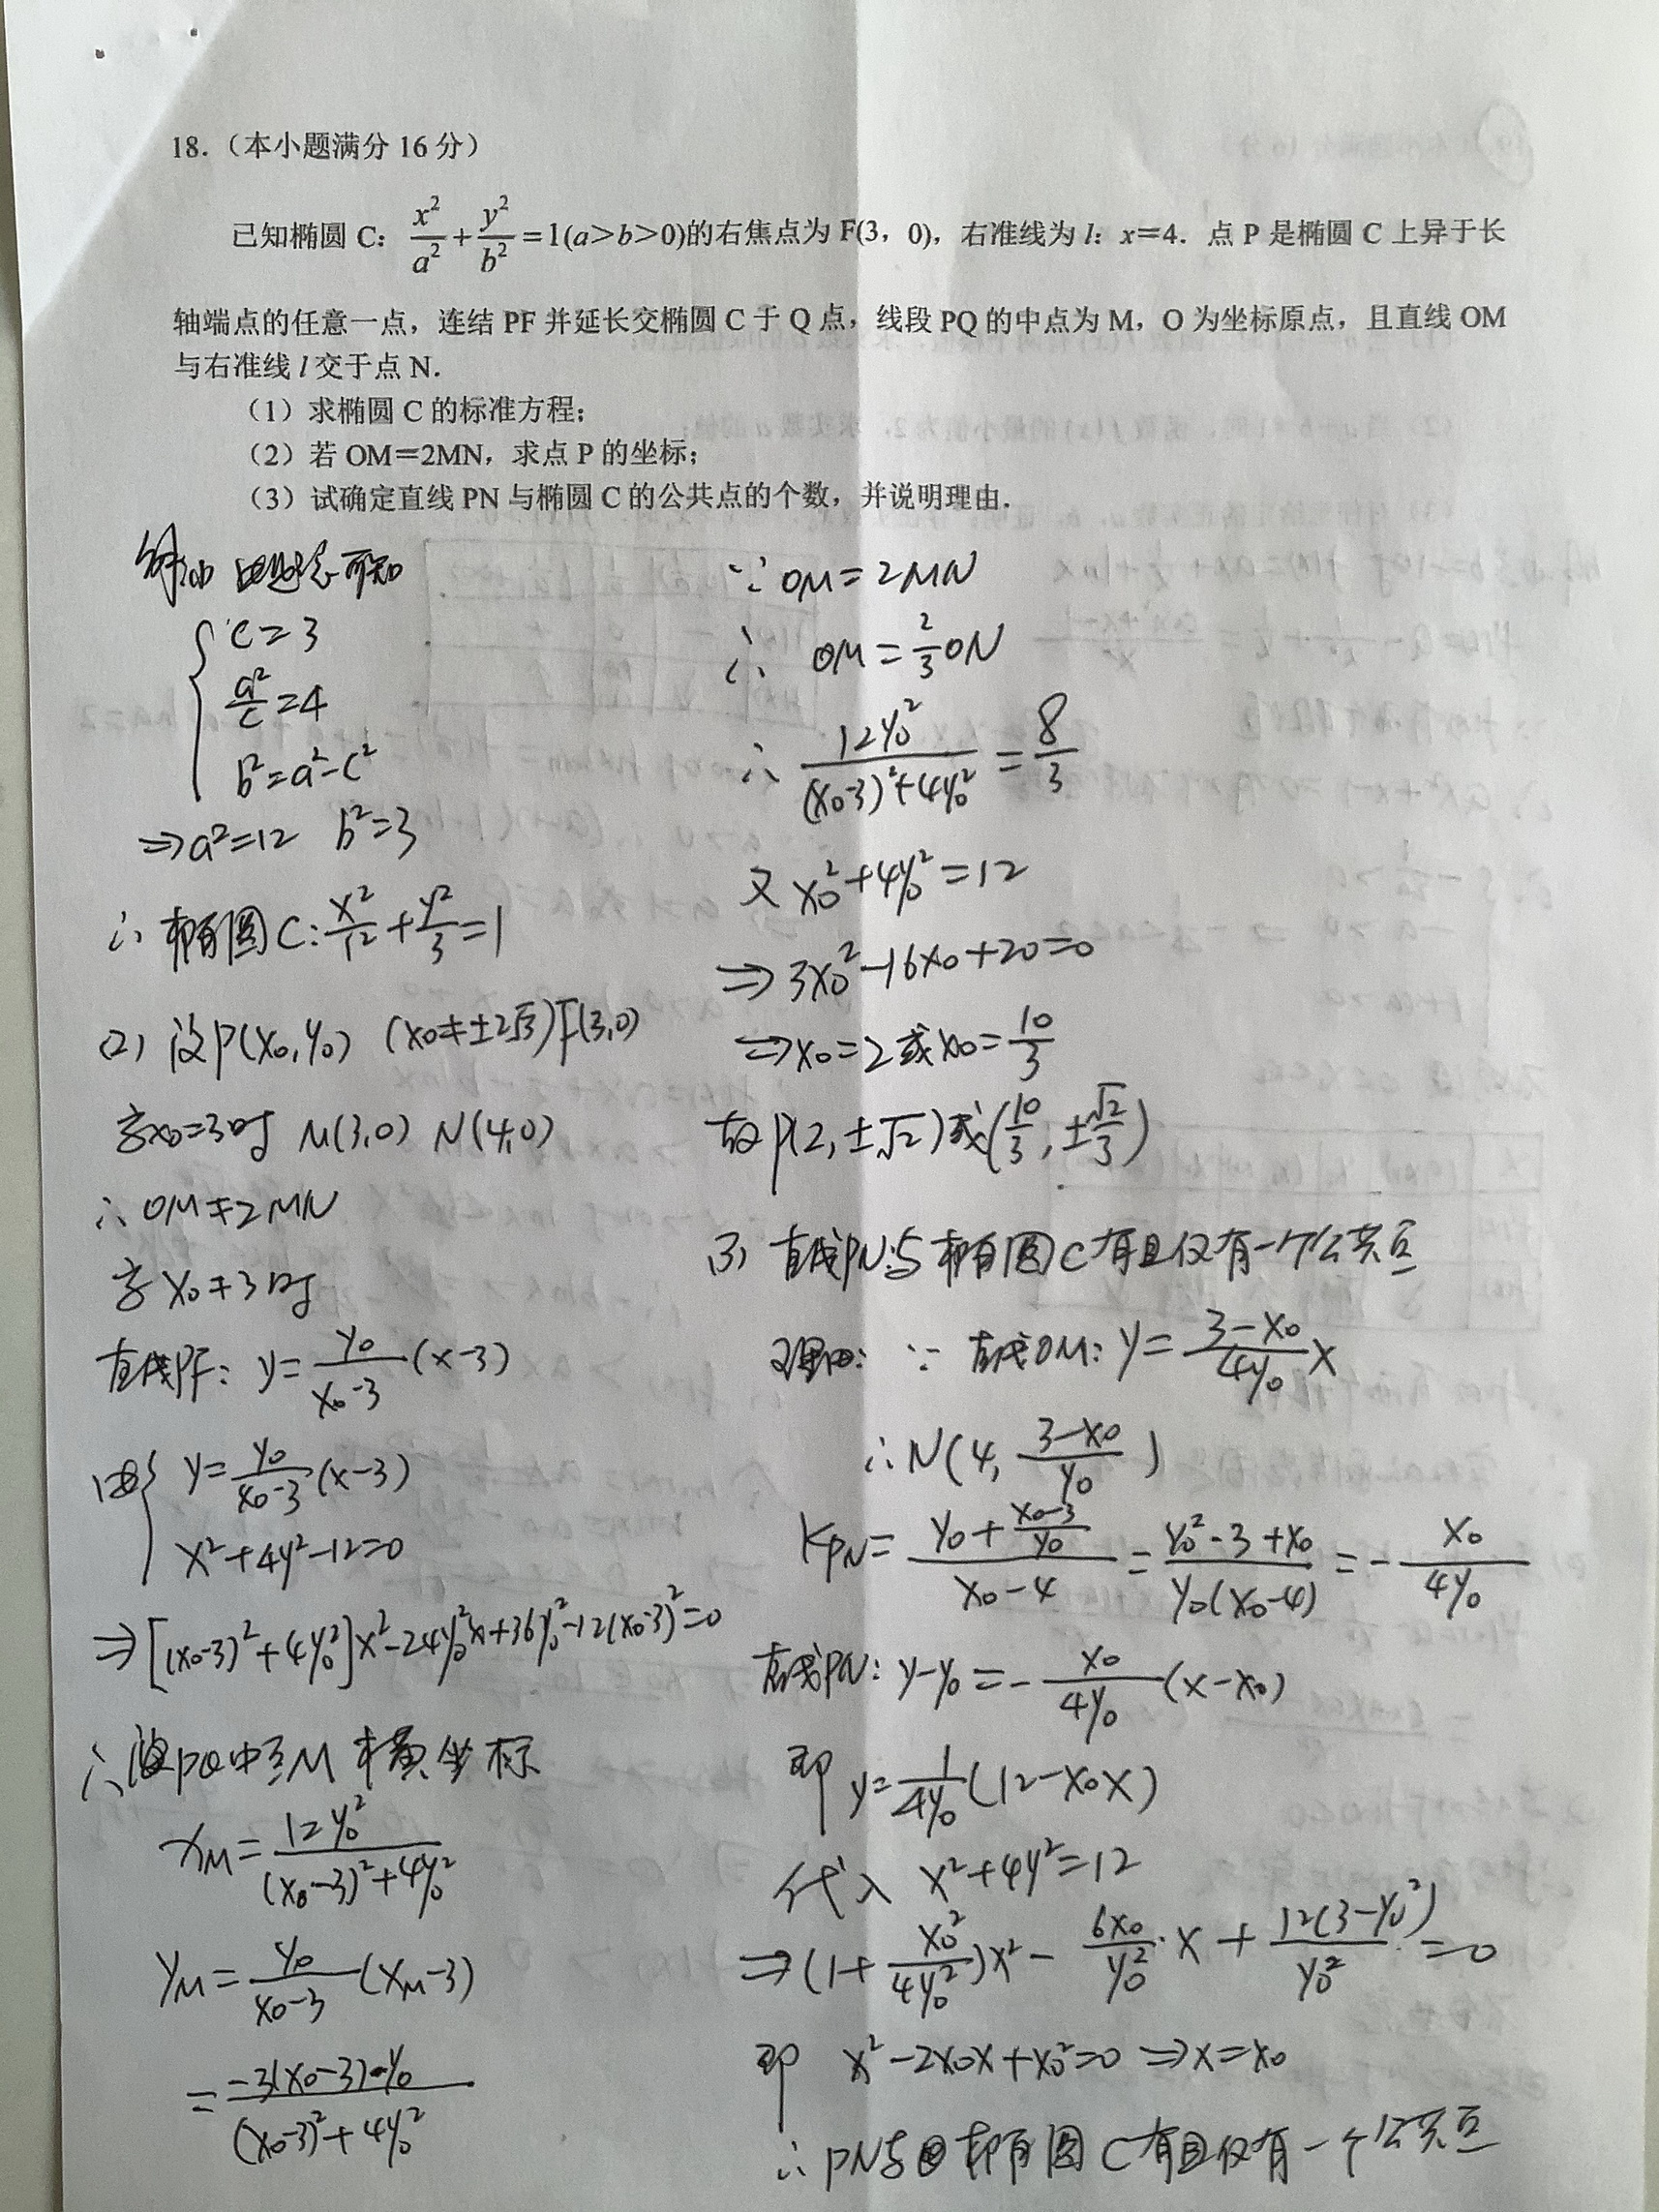 18.（本小题满分 16 分）
已知椭圆 C：x²/a² + y²/b² =1(a>b>0)的右焦点为 F(3，0)，右准线为 l：x=4．点 P 是椭圆 C 上异于长
轴端点的任意一点，连结 PF 并延长交椭圆 C 于 Q 点，线段 PQ 的中点为 M，O 为坐标原点，且直线 OM
与右准线 l 交于点 N．
（1）求椭圆 C 的标准方程；
（2）若 OM=2MN，求点 P 的坐标；
（3）试确定直线 PN 与椭圆 C 的公共点的个数，并说明理由．
解:(1) 由题意可知
{ c=3
a²/c=4
b²=a²-c²
⇒a²=12 b²=3
∴椭圆C: x²/12 + y²/3 =1
(2) 设P(x₀,y₀) (x₀≠±2√3) F(3,0)
当x₀=3时 M(3,0) N(4,0)
∴OM≠2MN
当x₀≠3时
直线PF: y= y₀/(x₀-3) (x-3)
由{ y= y₀/(x₀-3) (x-3)
x²+4y²-12=0
⇒[(x₀-3)²+4y₀²]x²-24y₀²x+36y₀²-12(x₀-3)²=0
∴ PQ中点M 横坐标
x_M= 12y₀²/((x₀-3)²+4y₀²)
y_M= y₀/(x₀-3) (x_M-3)
= -3(x₀-3)·y₀/((x₀-3)²+4y₀²)
∵OM=2MN
∴ OM= 2/3 ON
∴ 12y₀²/((x₀-3)²+4y₀²) = 8/3
又 x₀²+4y₀²=12
⇒3x₀²-16x₀+20=0
⇒x₀=2或x₀= 10/3
故P(2,±√2)或(10/3, ±√2/3)
(3) 直线PN与椭圆C有且仅有一个公共点
理由: ∵ 直线OM: y= (3-x₀)/4y₀ x
∴N(4, (3-x₀)/y₀)
K_PN= (y₀+ (x₀-3)/y₀)/(x₀-4) = (y₀²-3+x₀)/(y₀(x₀-4)) = - x₀/4y₀
直线PN: y-y₀=- x₀/4y₀ (x-x₀)
即 y= 1/4y₀ (12-x₀x)
代入 x²+4y²=12
⇒(1+ x₀²/4y₀²)x²- 6x₀/y₀² ·x+ 12(3-y₀²)/y₀² =0
即 x²-2x₀x+x₀²=0 ⇒x=x₀
∴PN与椭圆C有且仅有一个公共点